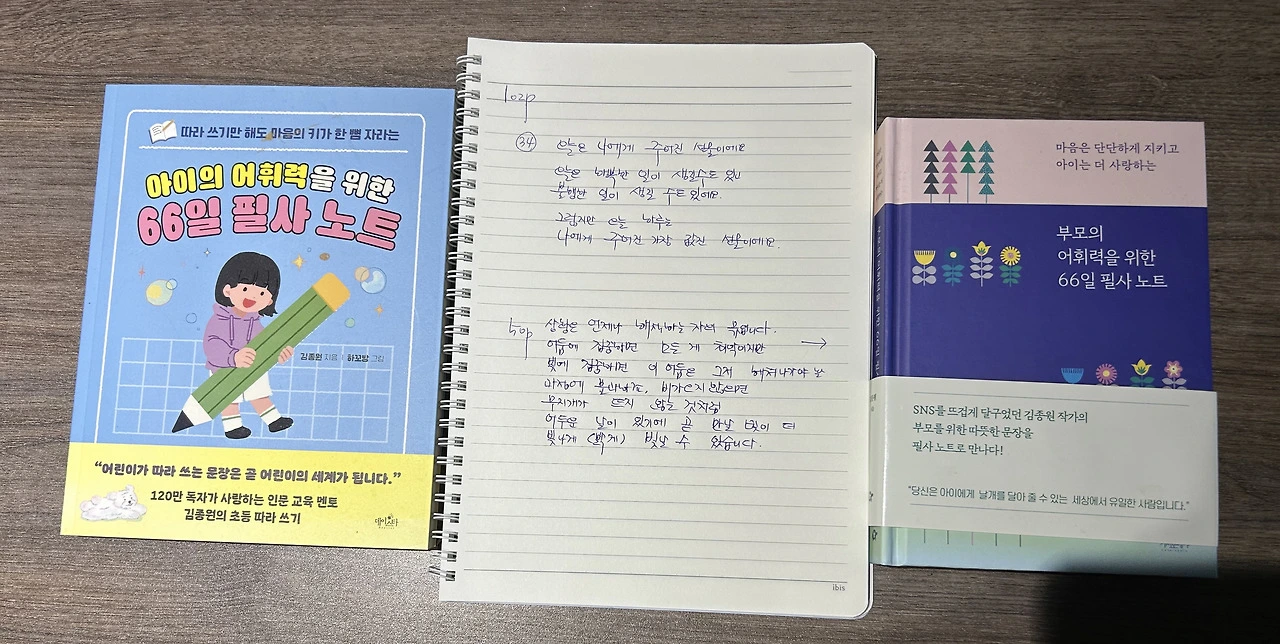 따라 쓰기만 해도 마음의 키가 한 뼘 자라는
아이의 어휘력을 위한
66일 필사 노트
김종원 지음 | 하꼬방 그림
“어린이가 따라 쓰는 문장은 곧 어린이의 세계가 됩니다.”
120만 독자가 사랑하는 인문 교육 멘토
김종원의 초등 따라 쓰기
데이스타
102p
34 오늘은 나에게 주어진 선물이에요
오늘은 기쁜 일이 생길수도 있고
불행한 일이 생길 수도 있어요.
그렇지만 오늘 하루는
나에게 주어진 가장 값진 선물이에요.
50p 상황은 언제나 해석하는 자의 몫입니다.
어둠에 집중하면 모든 게 최악이지만 →
빛에 집중하면 이 어둠은 그저 헤쳐나가야 할
과정에 불과하죠. 비가 오지 않으면
무지개가 뜨지 않는 것처럼
어두운 날이 있기에 곧 만날 빛이 더
빛나게 (밝게) 빛날 수 있습니다.
ibis
마음은 단단하게 지키고
아이는 더 사랑하는
부모의
어휘력을 위한
66일 필사 노트
SNS를 뜨겁게 달구었던 김종원 작가의
부모를 위한 따뜻한 문장을
필사 노트로 만나다!
“당신은 아이에게 날개를 달아 줄 수 있는 세상에서 유일한 사람입니다.”